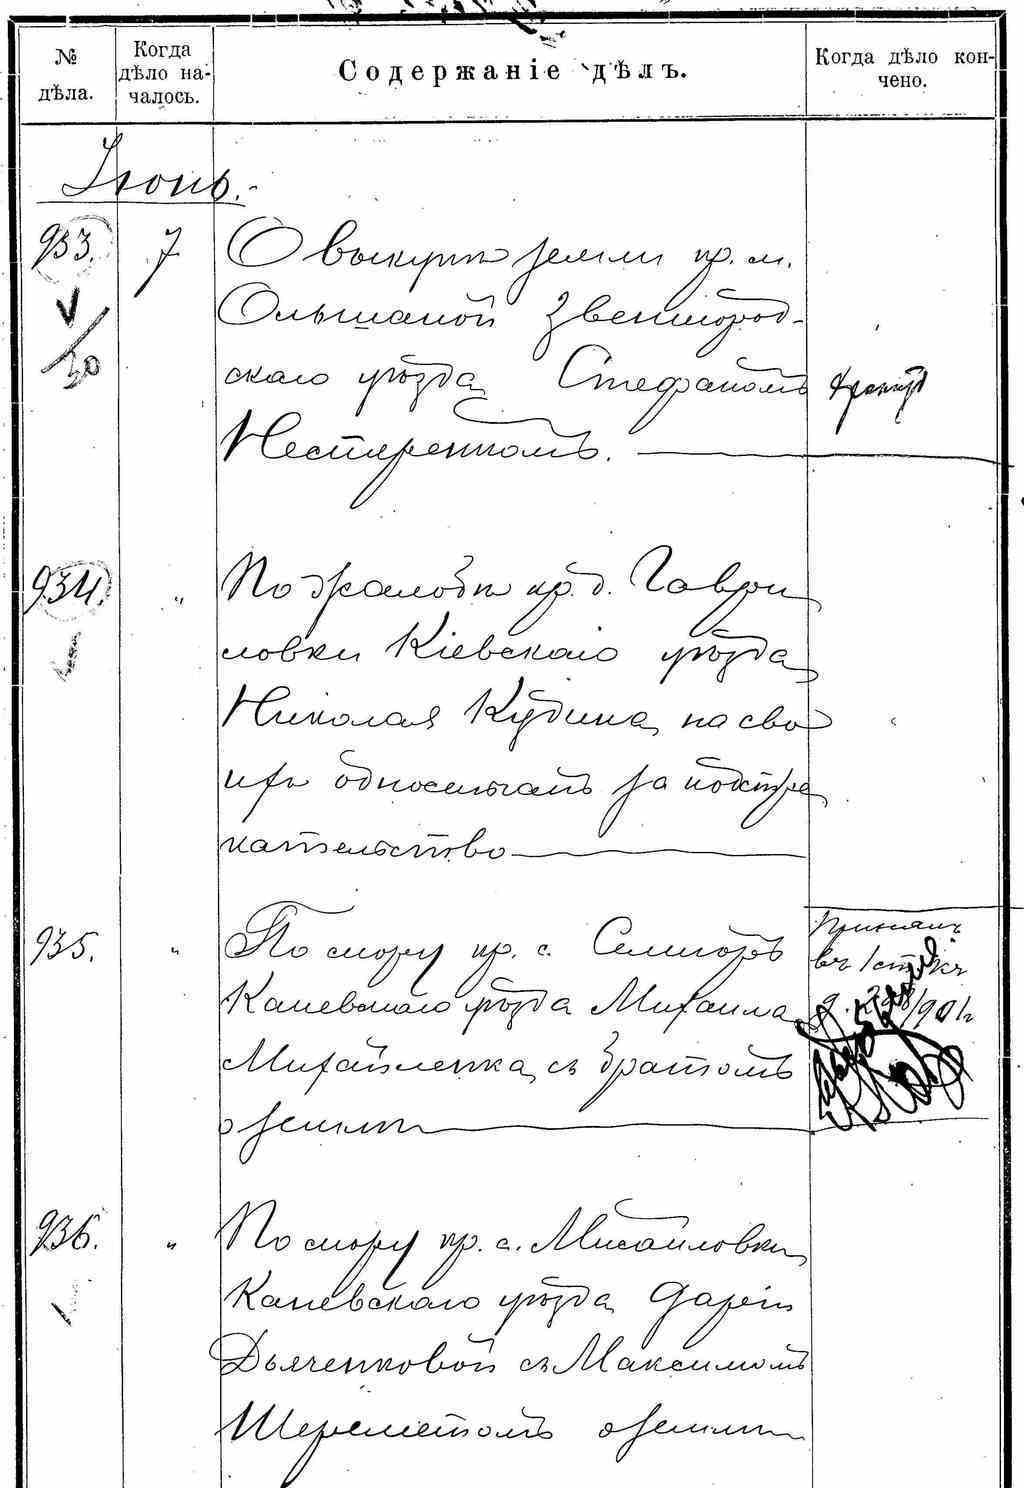 № дѣла.
Когда дѣло на-
чалось.
Содержаніе дѣлъ.
Когда дѣло кон-
чено.
Іюнь.
933. 7 О выкупѣ земли кр. м.
30
Ольшаной Звенигород-
скаго уѣзда Стефаномъ
Нестеренкомъ.
934. „ По жалобѣ кр. д. Гаври
ловки Кіевскаго уѣзда
Николая Кудина на сво
ихъ односельчанъ за подстре
кательство
935. „ По спору кр. с. Селигоръ
Каневскаго уѣзда Михаила
Михайленка съ братомъ
о земли
въ 1 ст.
936. „ По спору кр. с. Михайловки
Каневскаго уѣзда Дарьи
Дьяченковой съ Максимомъ
Шереметомъ о земли